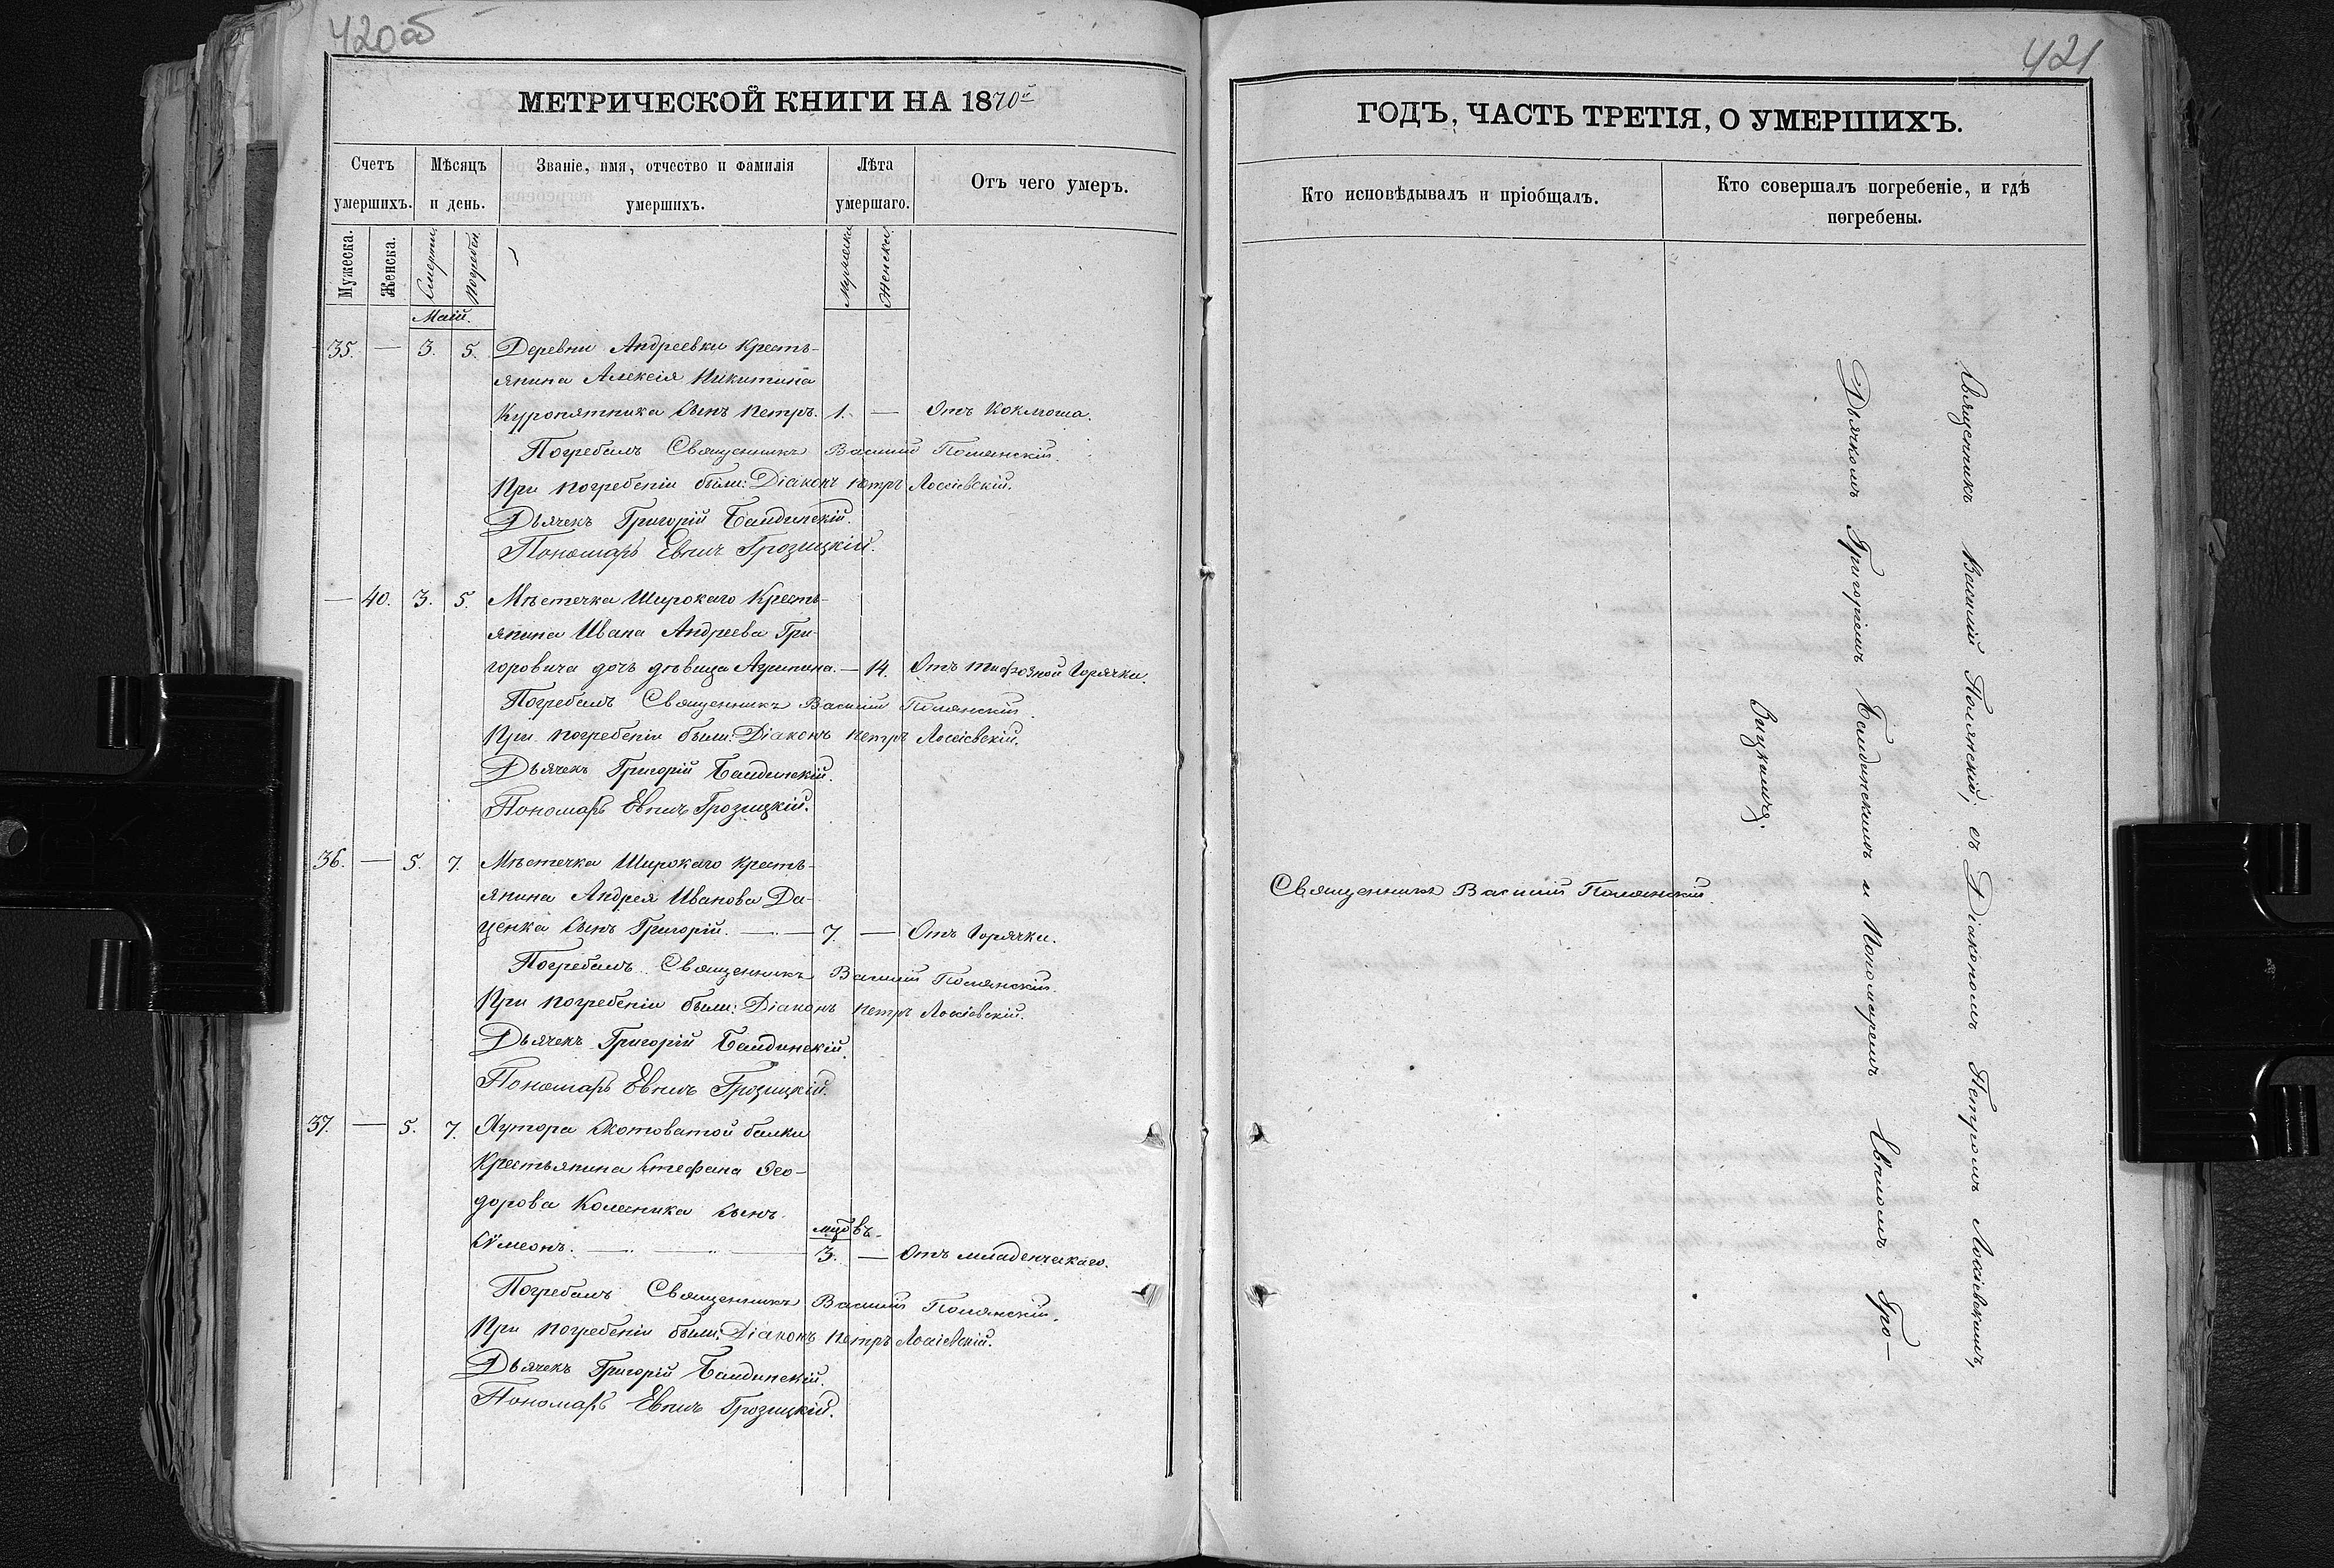 420об
МЕТРИЧЕСКОЙ КНИГИ НА 1870й
Счетъ умершихъ.
Мѣсяцъ и день.
Званіе, имя, отчество и фамилія умершихъ.
Лѣта умершаго.
Отъ чего умеръ.
Мужеска.
Женска.
Смерти.
Погребен.
Мужеска
Женска
Маій.
35. — 3. 5. Деревни Андреевки Кресть-
янина Алексія Никитина
Куропятника сынъ Петръ. 1. — Отъ коклюша.
Погребалъ Священникъ Василій Полянскій.
При погребеніи были: Діаконъ Петръ Лосіевскій.
Дьячекъ Григорій Балдинскій.
Пономарь Евѳилъ Грозицкій.
— 40. 3. 5. Мѣстечка Широкаго Кресть-
янина Ивана Андреева Гри-
горовича дочь дѣвица Агрипина. — 14. Отъ тифозной горячки.
Погребалъ Священникъ Василій Полянскій.
При погребеніи были: Діаконъ Петръ Лосіевскій.
Дьячекъ Григорій Балдинскій.
Пономарь Евѳилъ Грозицкій.
36. — 5. 7. Мѣстечка Широкаго кресть-
янина Андрея Иванова Да-
ценка сынъ Григорій. — 7. — Отъ горячки.
Погребалъ Священникъ Василій Полянскій.
При погребеніи были: Діаконъ Петръ Лосіевскій.
Дьячекъ Григорій Балдинскій.
Пономарь Евѳилъ Грозицкій.
37. — 5. 7. Хутора Скотоватой балки
Крестьянина Стефана Ѳео-
дорова Колесника сынъ
мцовъ.
Сѵмеонъ. — 3. — Отъ младенческаго.
Погребалъ Священникъ Василій Полянскій.
При погребеніи были: Діаконъ Петръ Лосіевскій.
Дьячекъ Григорій Балдинскій.
Пономарь Евѳилъ Грозицкій.
421
ГОДЪ, ЧАСТЬ ТРЕТІЯ, О УМЕРШИХЪ.
Кто исповѣдывалъ и пріобщалъ.
Кто совершалъ погребеніе, и гдѣ погребены.
Священникъ Василій Полянскій.
Священникъ Василій Полянскій, съ Діакономъ Петромъ Лосіевскимъ,
Дьячкомъ Григоріемъ Балдинскимъ и Пономаремъ Евѳиломъ Гро-
зицкимъ.